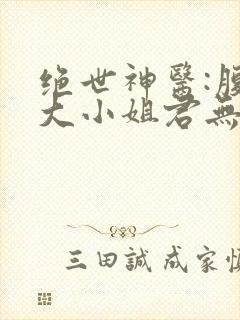 绝世神醫:腹
大小姐君無
三田誠 成家慎